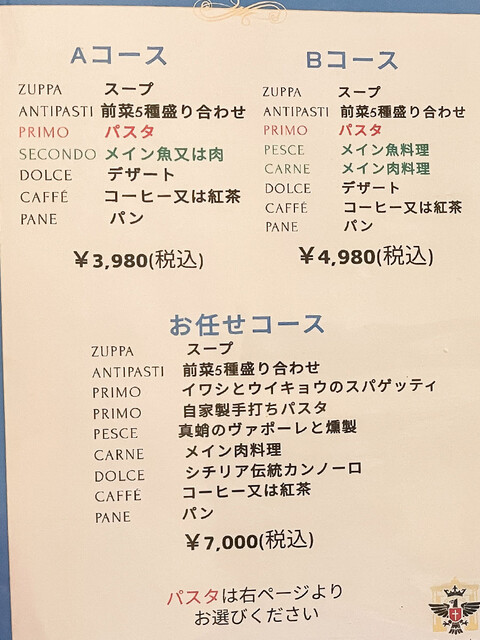 Aコース
ZUPPA スープ
ANTIPASTI 前菜5種盛り合わせ
PRIMO パスタ
SECONDO メイン魚又は肉
DOLCE デザート
CAFFÉ コーヒー又は紅茶
PANE パン
￥3,980(税込)
Bコース
ZUPPA スープ
ANTIPASTI 前菜5種盛り合わせ
PRIMO パスタ
PESCE メイン魚料理
CARNE メイン肉料理
DOLCE デザート
CAFFÉ コーヒー又は紅茶
PANE パン
￥4,980(税込)
お任せコース
ZUPPA スープ
ANTIPASTI 前菜5種盛り合わせ
PRIMO イワシとウイキョウのスパゲッティ
PRIMO 自家製手打ちパスタ
PESCE 真蛸のヴァポーレと燻製
CARNE メイン肉料理
DOLCE シチリア伝統カンノーロ
CAFFÉ コーヒー又は紅茶
PANE パン
￥7,000(税込)
パスタは右ページより
お選びください